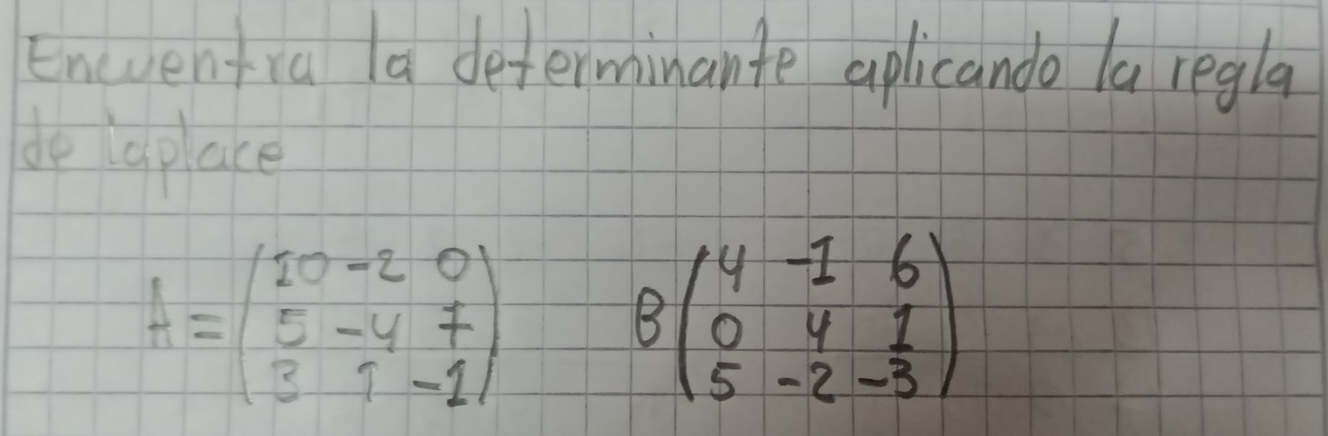 Encuentra la determinante aplicando la regla
de laplace
10 -2 0 4 -1 6
A = 5 -4 7 B 0 4 1
3 1 -1 5 -2 -3